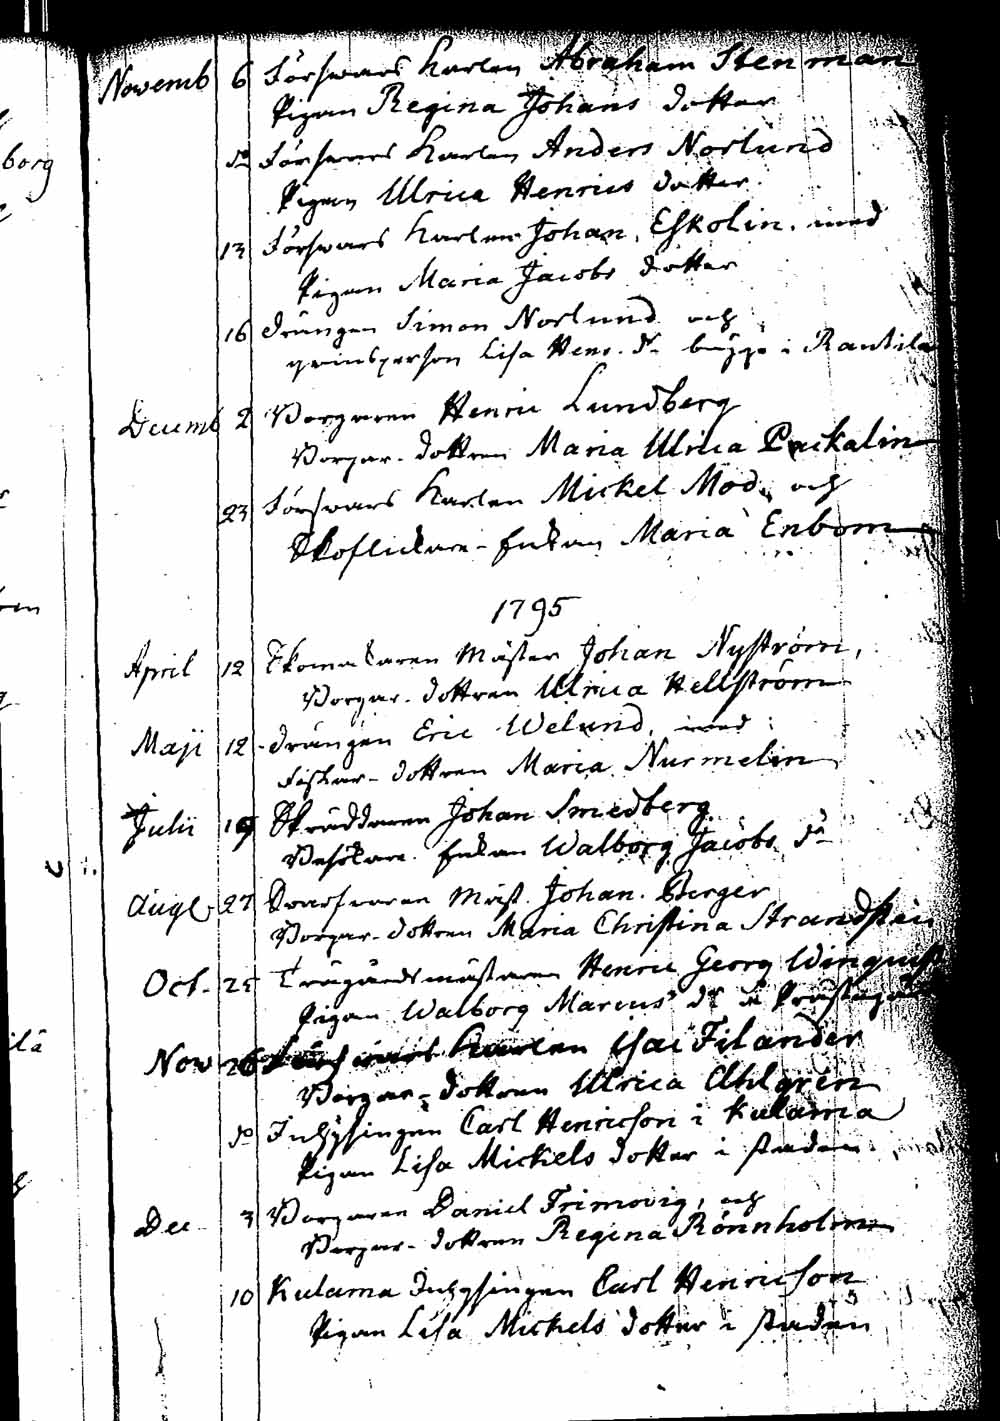 Novemb 6 Försvars Karlen Abraham Stenman
Pigan Regina Johans dotter
do Försvars Karlen Anders Norlund
Pigan Ulrica Henrics dotter
13 Försvars Karlen Johan Eskolin, med
Pigan Maria Jacobs dotter
16 drängen Simon Norlund och
qvinsperson Lisa Henr. dr bägge i Rantila
Decemb 2 Borgaren Henric Lundberg
Borgar-dottren Maria Ulrica Packalin
23 Försvars Karlen Mickel Mod, och
Skoflickare-Enkan Maria Enbom
1795
April 12 Skomakaren Mäster Johan Nyström,
Borgar-dottren Ulrica Hellström
Maji 12 drängen Eric Welund, med
Fiskar-dottren Maria Nurmelin
Julii 19 Skräddaren Johan Smedberg
Besökare Enkan Walborg Jacobs dr
Aug 27 Swarfvaren Mäst. Johan Berger
Borgar-dottren Maria Christina Strandsten
Oct. 25 Trägårdsmästaren Henric Georg Winquist
Pigan Walborg Marcus dr
Nov 26 Försvars Karlen Isai Filander
Borgar-dottren Ulrica Ahlgren
do Inhysingen Carl Henricson i Kulama
Pigan Lisa Mickels dotter i staden
Dec 3 Borgaren Daniel Trimovig, och
Borgar-dottren Regina Rönnholm
10 Kulama Inhysingen Carl Henricson
Pigan Lisa Mickels dotter i staden
borg